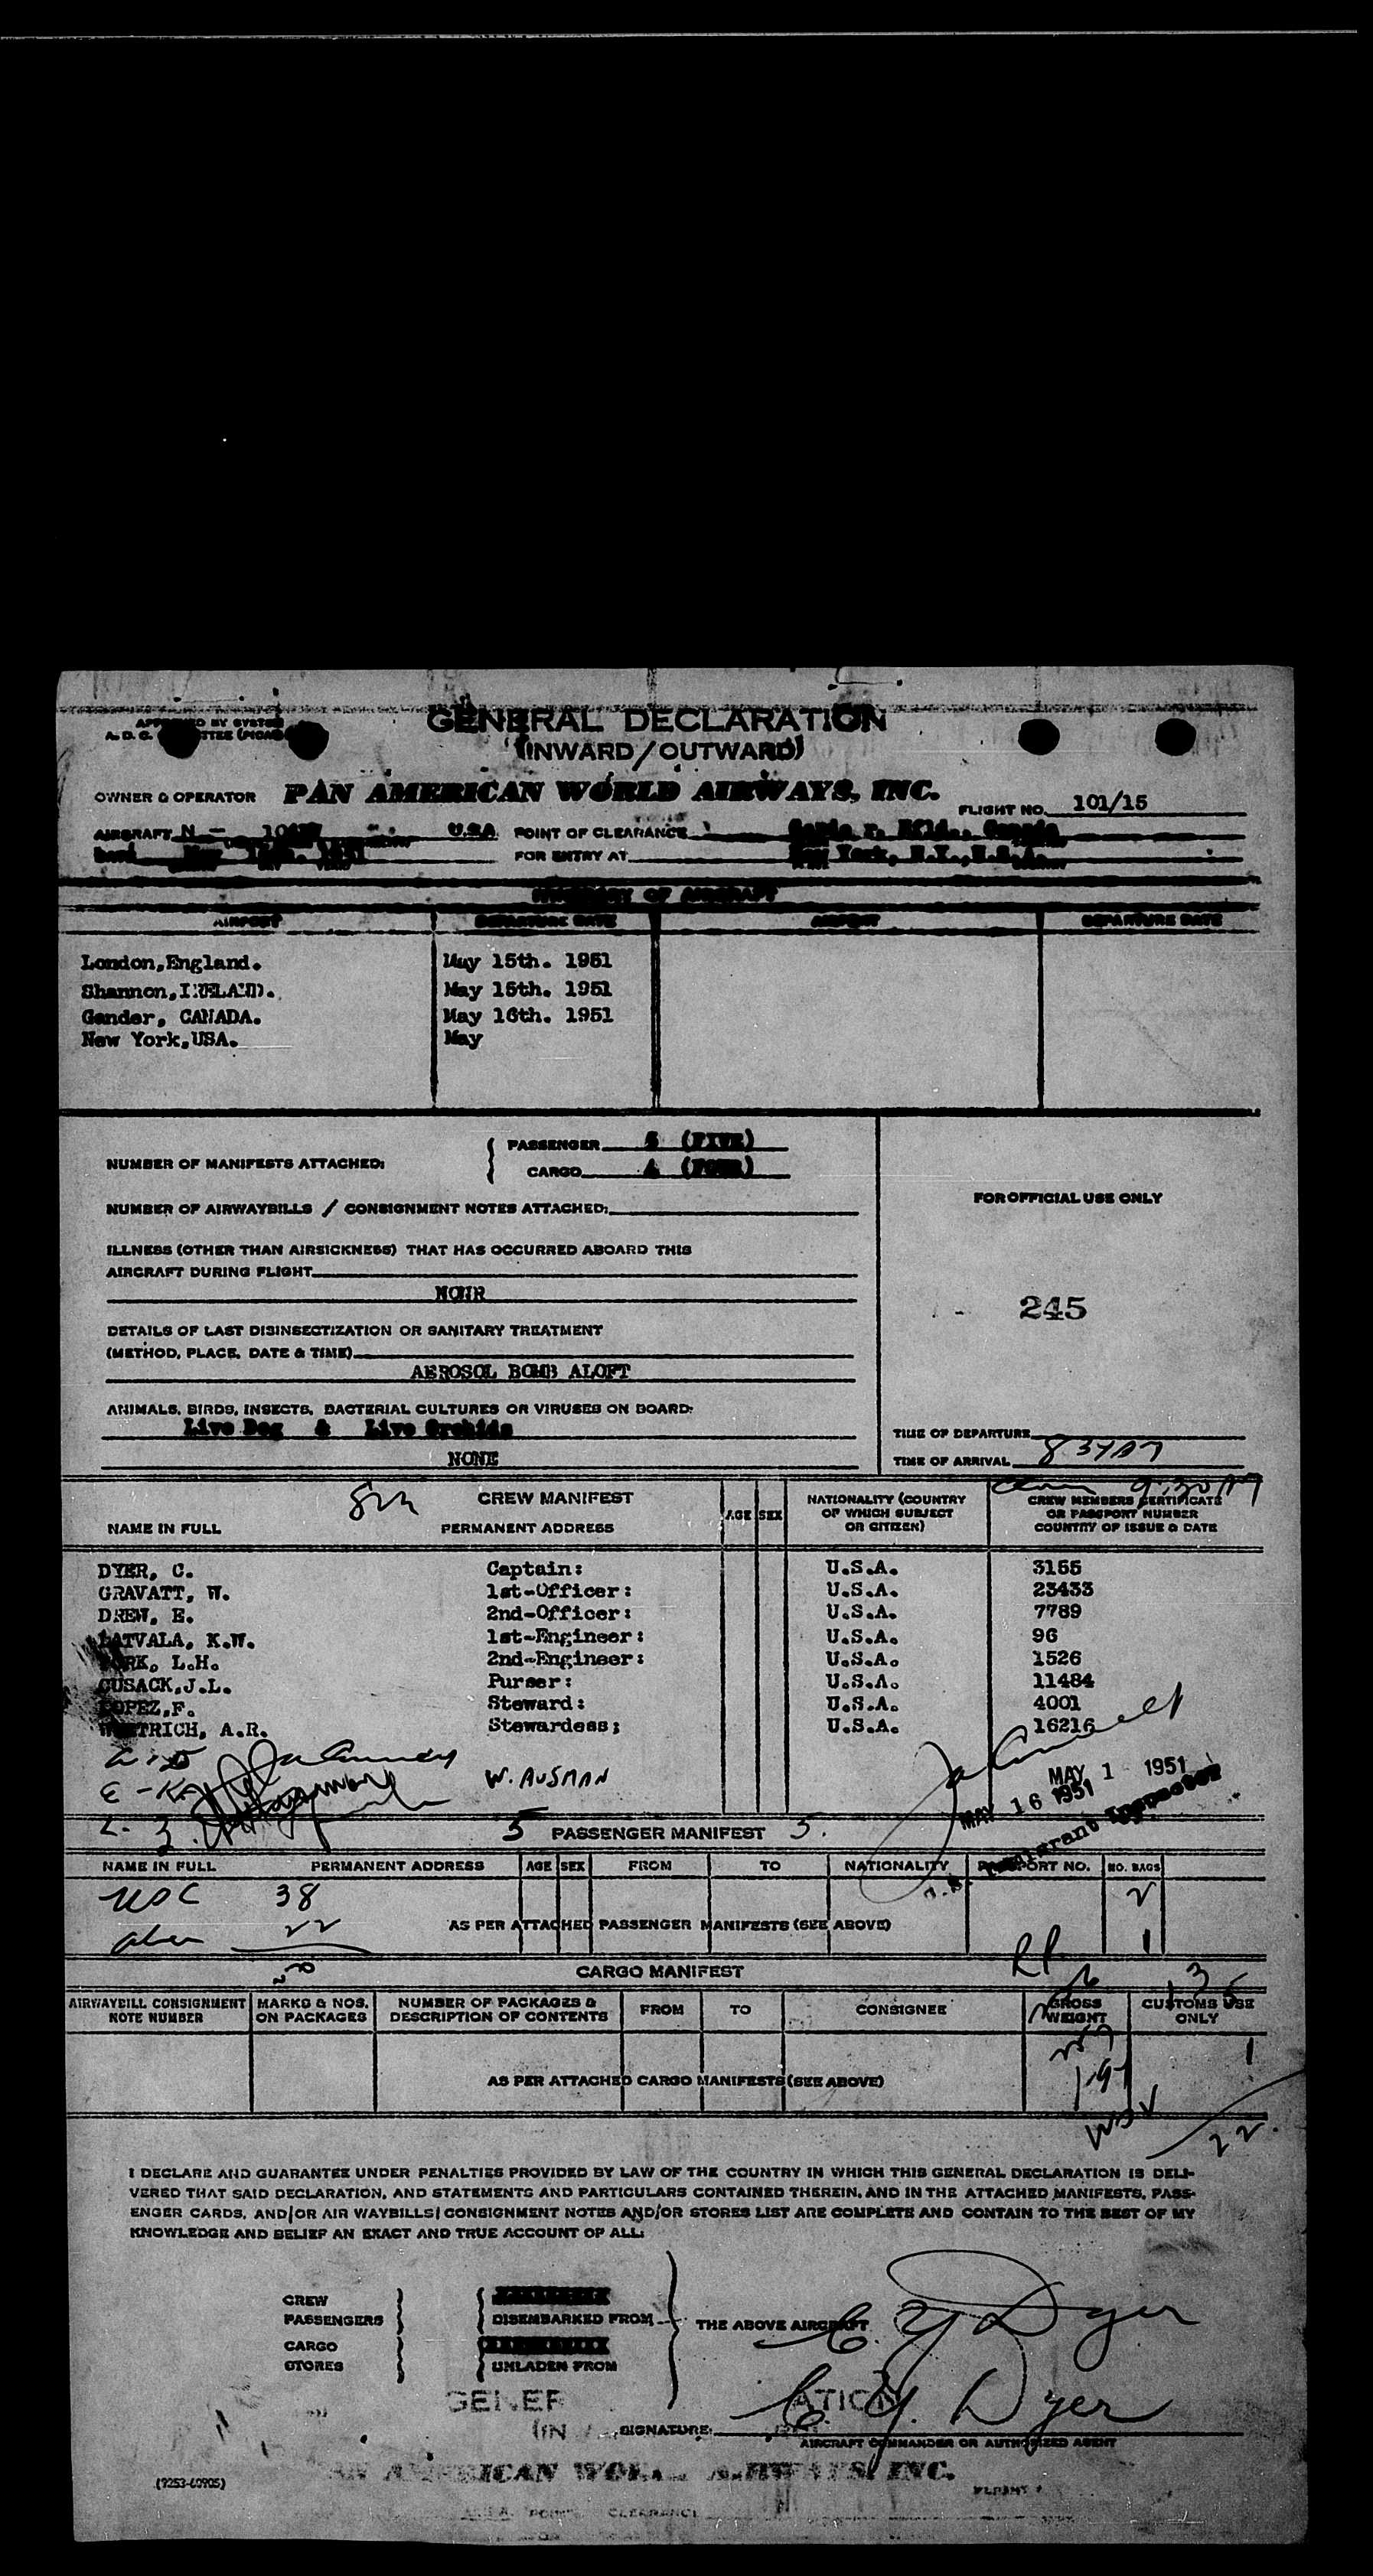 GENERAL DECLARATION
(INWARD/OUTWARD)
OWNER & OPERATOR PAN AMERICAN WORLD AIRWAYS, INC. FLIGHT NO. 101/15
AIRCRAFT N - U.S.A. POINT OF CLEARANCE
FOR ENTRY AT New York, N.Y., U.S.A.
ITINERARY OF AIRCRAFT
AIRPORT DEPARTURE DATE AIRPORT DEPARTURE DATE
London,England. May 15th. 1951
Shannon,IRELAND. May 15th. 1951
Gander, CANADA. May 16th. 1951
New York,USA. May
NUMBER OF MANIFESTS ATTACHED: PASSENGER 5 (FIVE)
CARGO 4 (FOUR)
FOR OFFICIAL USE ONLY
NUMBER OF AIRWAYBILLS / CONSIGNMENT NOTES ATTACHED:
ILLNESS (OTHER THAN AIRSICKNESS) THAT HAS OCCURRED ABOARD THIS
AIRCRAFT DURING FLIGHT
245
DETAILS OF LAST DISINSECTIZATION OR SANITARY TREATMENT
(METHOD, PLACE, DATE & TIME)
AEROSOL BOMB ALOFT
ANIMALS, BIRDS, INSECTS, BACTERIAL CULTURES OR VIRUSES ON BOARD:
Live Dog & Live Orchids
TIME OF DEPARTURE
NONE
TIME OF ARRIVAL 8 34 AM
9:30 AM
CREW MANIFEST
NAME IN FULL PERMANENT ADDRESS AGE SEX NATIONALITY (COUNTRY OF WHICH SUBJECT OR CITIZEN) CREW MEMBERS CERTIFICATE OR PASSPORT NUMBER COUNTRY OF ISSUE & DATE
DYER, C. Captain: U.S.A. 3155
GRAVATT, W. 1st-Officer: U.S.A. 23433
DREW, E. 2nd-Officer: U.S.A. 7789
LATVALA, K.W. 1st-Engineer: U.S.A. 96
L.H. 2nd-Engineer: U.S.A. 1526
CUSACK,J.L. Purser: U.S.A. 11484
LOPEZ,F. Steward: U.S.A. 4001
A.R. Stewardess; U.S.A. 16216
W. AUSMAN
MAY 1 1951
MAY 16 1951
Immigrant Inspector
5 PASSENGER MANIFEST 5.
NAME IN FULL PERMANENT ADDRESS AGE SEX FROM TO NATIONALITY PASSPORT NO. NO. BAGS
USC 38 2
22 1
AS PER ATTACHED PASSENGER MANIFESTS (SEE ABOVE)
CARGO MANIFEST
AIRWAYBILL CONSIGNMENT NOTE NUMBER MARKS & NOS. ON PACKAGES NUMBER OF PACKAGES & DESCRIPTION OF CONTENTS FROM TO CONSIGNEE GROSS WEIGHT CUSTOMS USE ONLY
AS PER ATTACHED CARGO MANIFESTS (SEE ABOVE)
22.
I DECLARE AND GUARANTEE UNDER PENALTIES PROVIDED BY LAW OF THE COUNTRY IN WHICH THIS GENERAL DECLARATION IS DELI-
VERED THAT SAID DECLARATION, AND STATEMENTS AND PARTICULARS CONTAINED THEREIN, AND IN THE ATTACHED MANIFESTS, PASS-
ENGER CARDS, AND/OR AIR WAYBILLS/CONSIGNMENT NOTES AND/OR STORES LIST ARE COMPLETE AND CONTAIN TO THE BEST OF MY
KNOWLEDGE AND BELIEF AN EXACT AND TRUE ACCOUNT OF ALL:
CREW
PASSENGERS DISEMBARKED FROM THE ABOVE AIRCRAFT C. Y. Dyer
CARGO
STORES UNLADEN FROM
SIGNATURE: C. Y. Dyer
AIRCRAFT COMMANDER OR AUTHORIZED AGENT
(9253-60905)